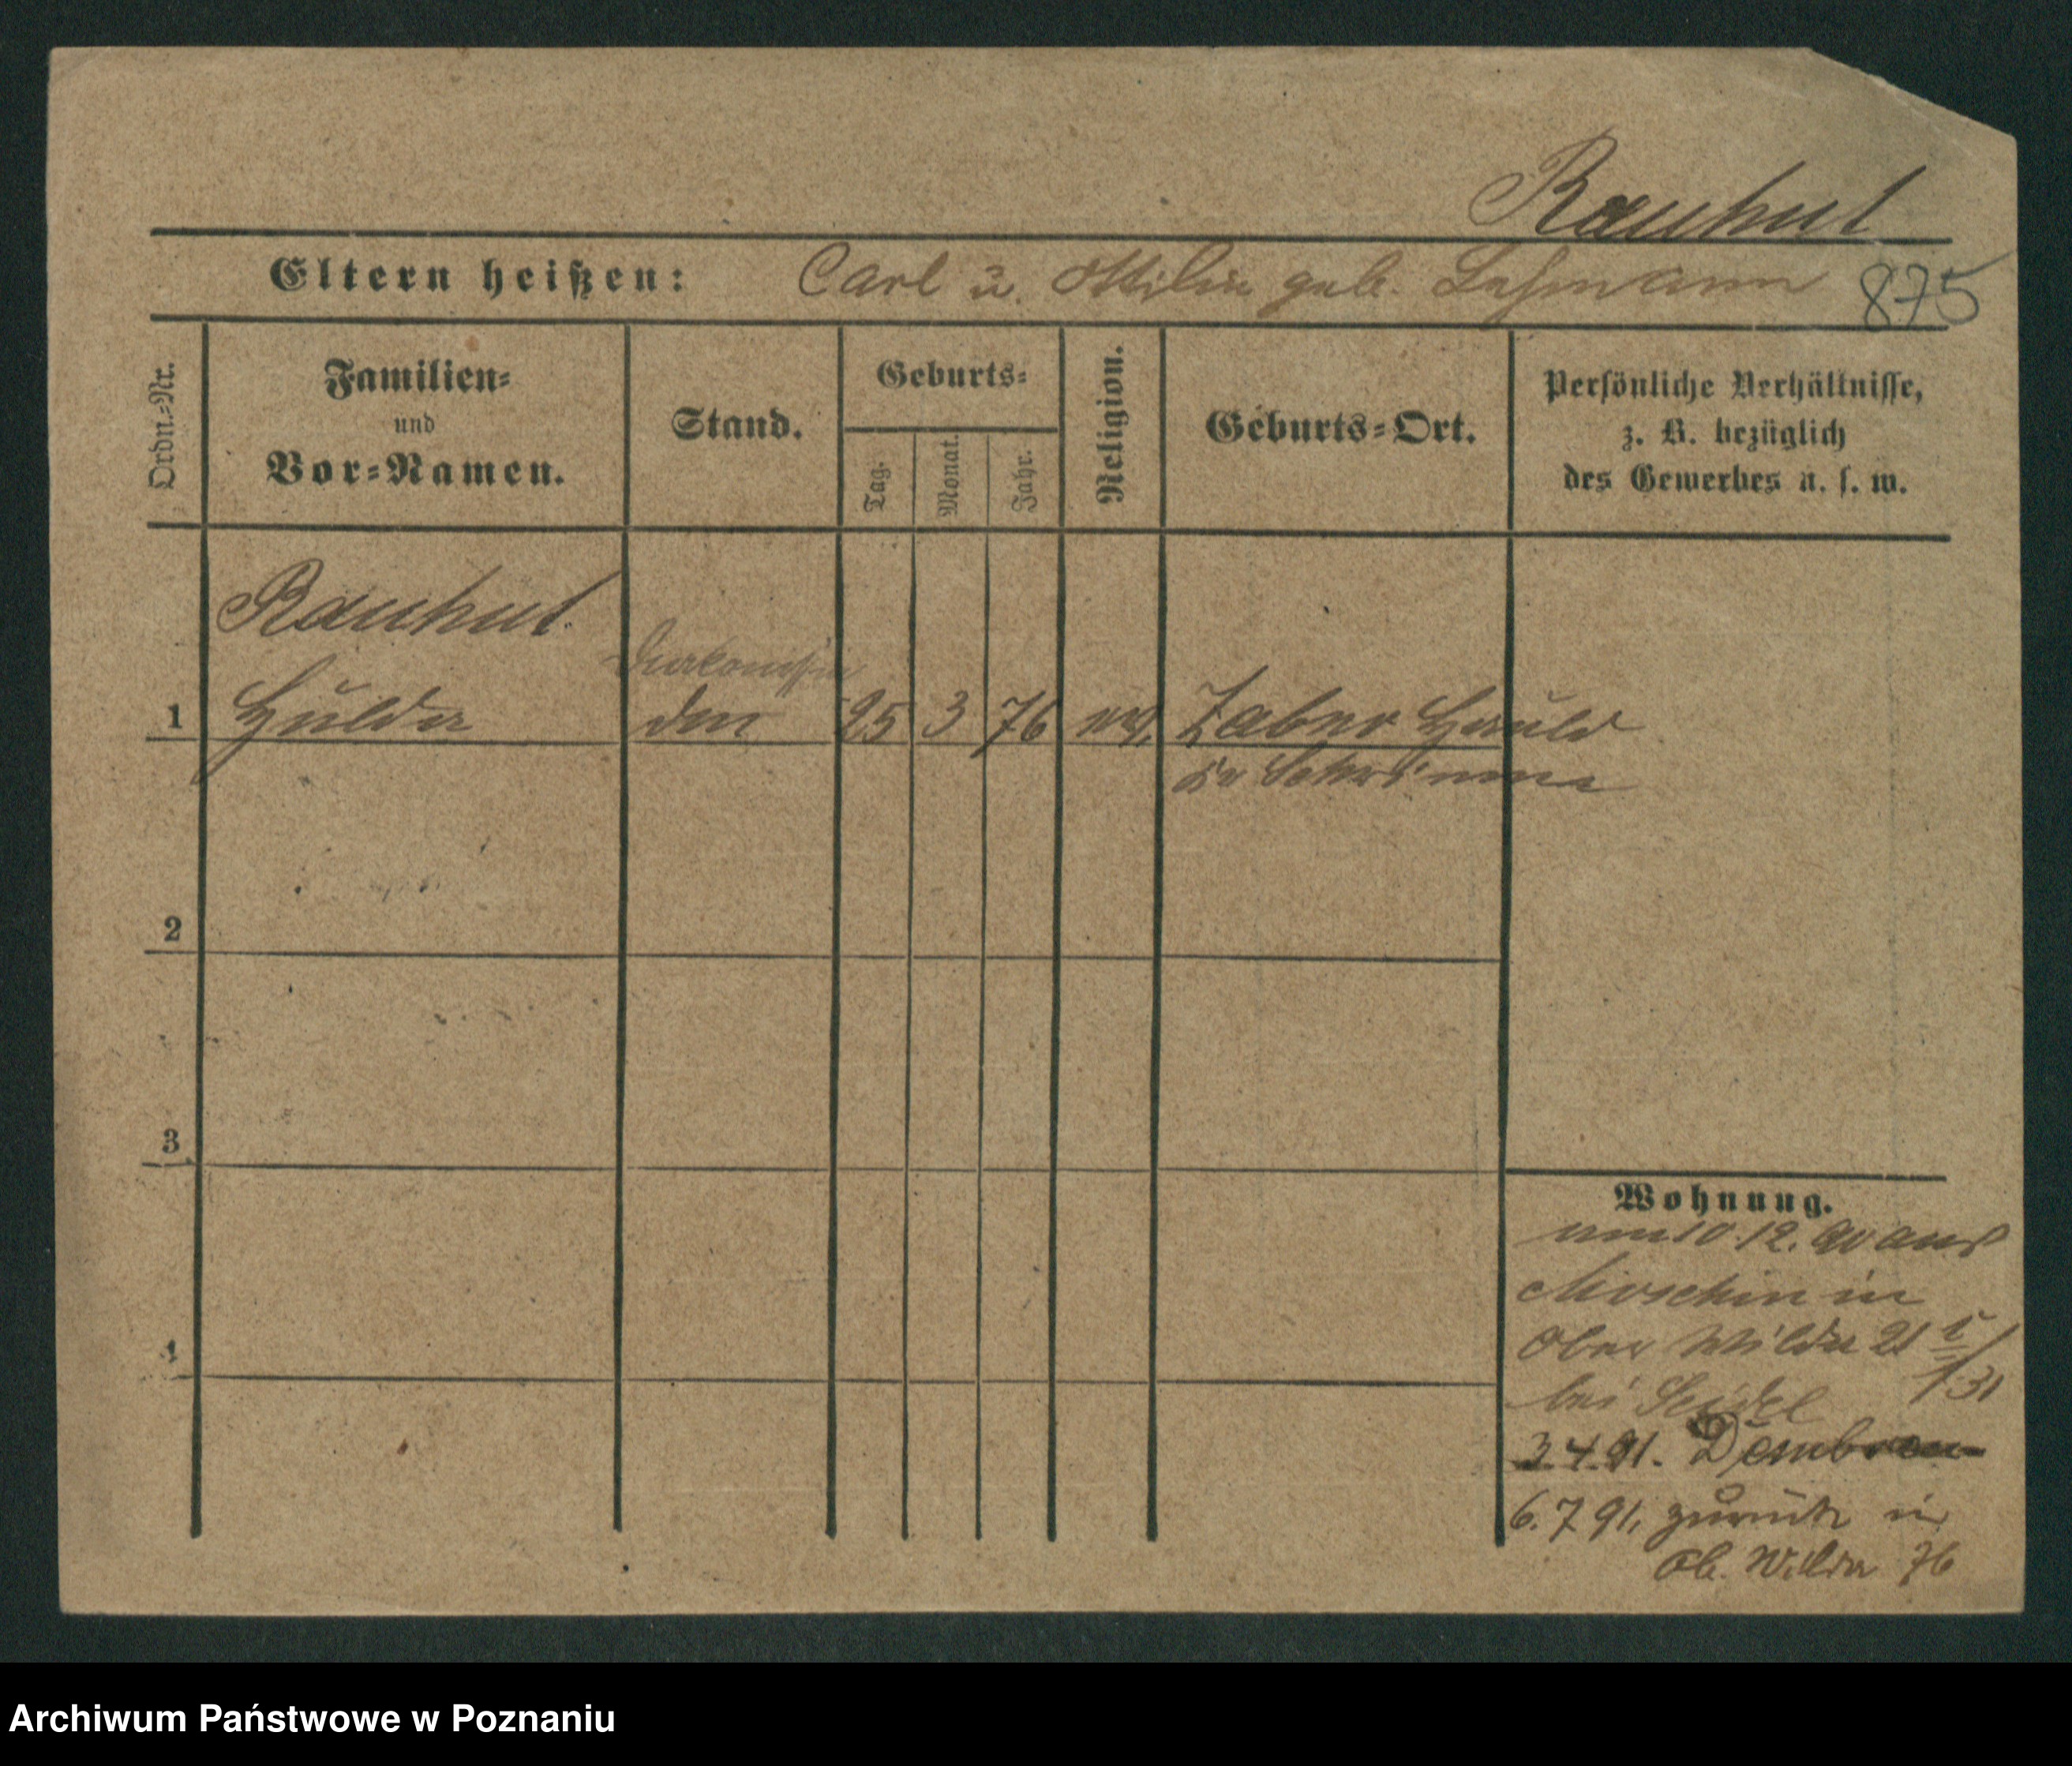 Rauhut
Eltern heißen: Carl u. Ottilie geb. Lehmann 875
Ordn.-Nr.
Familien-
und
Vor-Namen.
Stand.
Geburts-
Tag.
Monat.
Jahr.
Religion.
Geburts-Ort.
Persönliche Verhältnisse,
z. B. bezüglich
des Gewerbes u. s. w.
Rauhut.
Diakonissin
1 Hulda 25 3 76 ev. Zabno Hauld
Kr Schrimm
2
3
4
Wohnung.
10.12.90 aus
Moschin in
Ober Wilda 21
bei Seidel 131
3.4.91. Dembsen
6.7.91. zurück in
Ob. Wilda 76
Archiwum Państwowe w Poznaniu